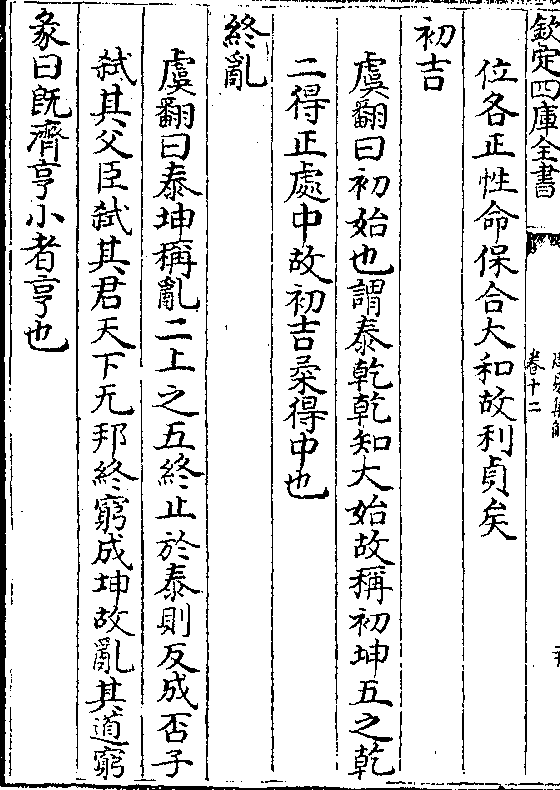 欽定四庫全書
卷十二
位各正性命保合大和故利貞矣
初吉
虞翻曰初始也謂泰乾乾知大始故稱初坤五之乾
二得正處中故初吉柔得中也
終亂
虞翻曰泰坤稱亂二上之五終止於泰則反成否子
弑其父臣弑其君天下无邦終窮成坤故亂其道窮
彖曰既濟亨小者亨也